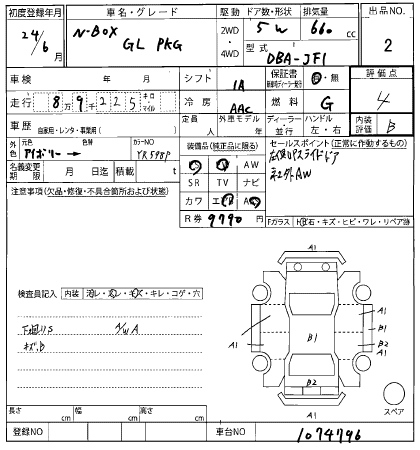 初度登録年月 車名・グレード 駆動 ドア数・形状 排気量 出品NO.
24/6 N-BOX GL PKG 2WD・4WD 5W 660 cc 2
型式 DBA-JF1
車検 年 月 シフト 1A 保証書 有・無 評価点
走行 8万9千225 キロ・マイル 冷房 AAC 燃料 G 4
車歴 自家用・レンタ・事業用( ) 定員 人 外車モデル 年 ディーラー・並行 ハンドル 左・右 内装評価 B
外色 元色 アイボリー→ 色替 カラーNO YR598P 装備品(純正品に限る) セールスポイント(正常に作動するもの)
名義変更期限 月 日迄 積載 t AW 左側Pスライドドア
SR TV ナビ 社外AW
注意事項(欠品・修復・不具合箇所および状態)
カワ エ
R券 9790 円 Fガラス
検査員記入 内装
キレ・コゲ・穴
下廻りS N/W A
キズ.B
A1
A1
A1
B1
B1
B2
A1
A1
B2
A1
スペア
長さ cm 幅 cm 高さ cm
登録NO 車台NO 1074796